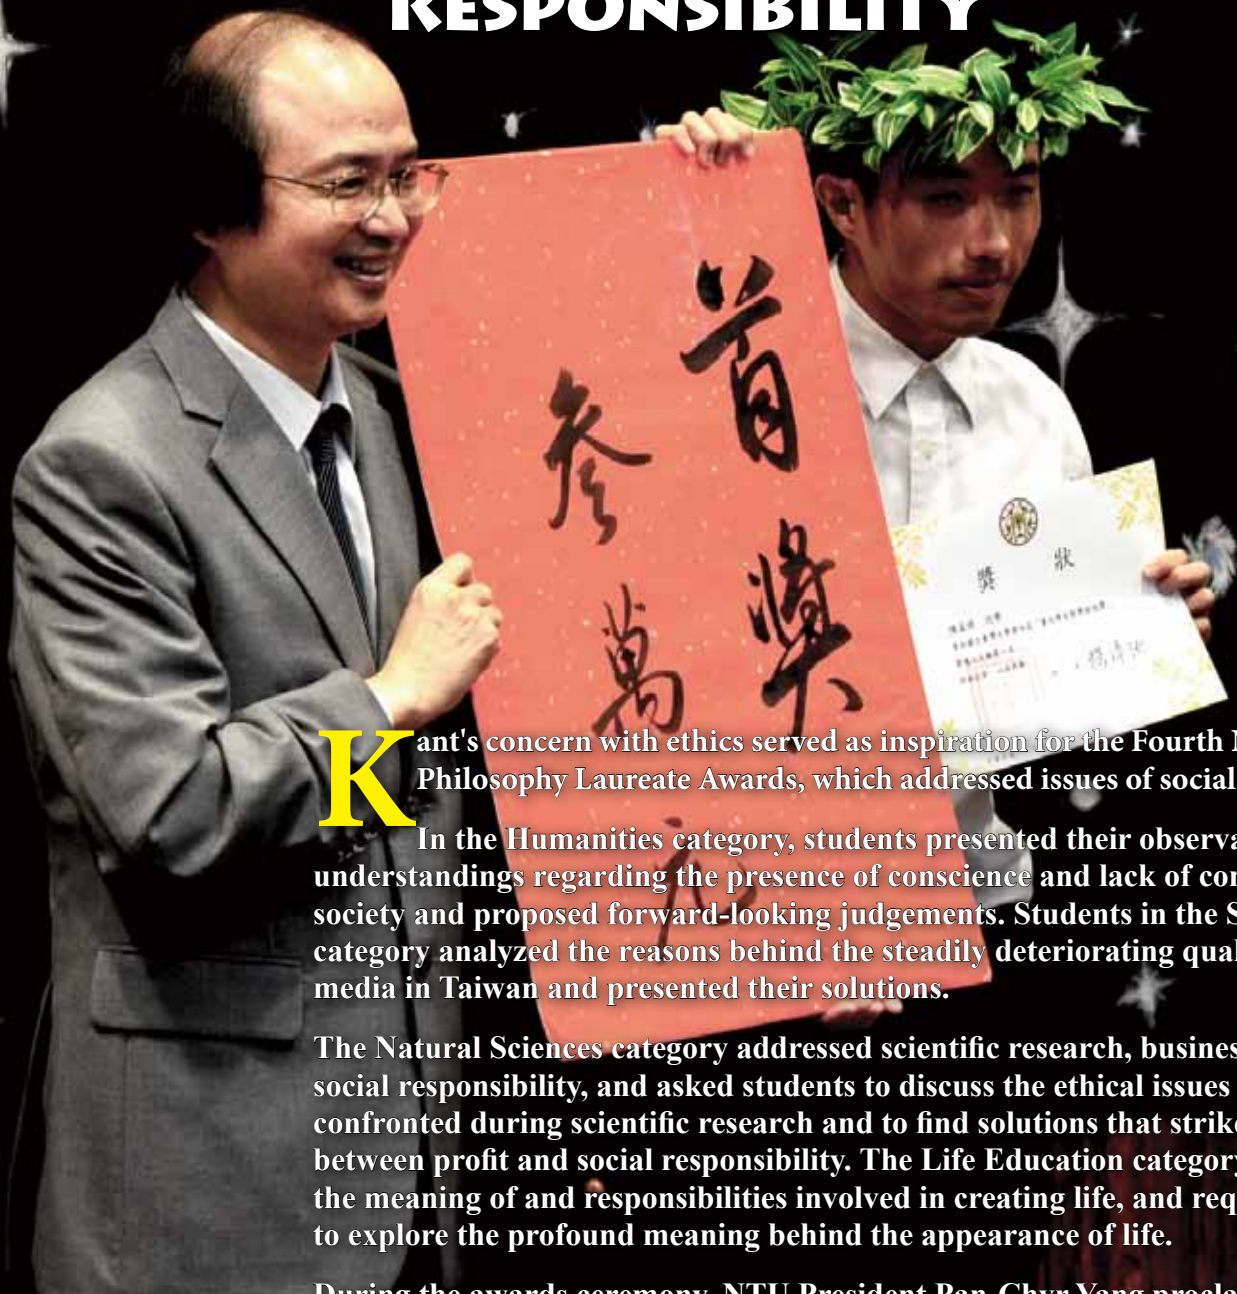 RESPONSIBILITY
首獎
參萬元
獎 狀
Kant's concern with ethics served as inspiration for the Fourth
Philosophy Laureate Awards, which addressed issues of social
In the Humanities category, students presented their
understandings regarding the presence of conscience and lack of
society and proposed forward-looking judgements. Students in the
category analyzed the reasons behind the steadily deteriorating
media in Taiwan and presented their solutions.
The Natural Sciences category addressed scientific research,
social responsibility, and asked students to discuss the ethical issues
confronted during scientific research and to find solutions that
between profit and social responsibility. The Life Education category
the meaning of and responsibilities involved in creating life, and
to explore the profound meaning behind the appearance of life.
During the awards ceremony, NTU President Pan-Chyr Yang